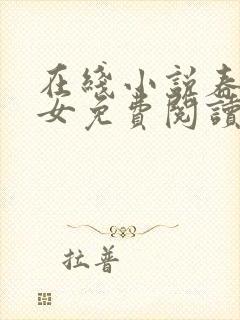 在綫小說春
女免費閱讀
拉普